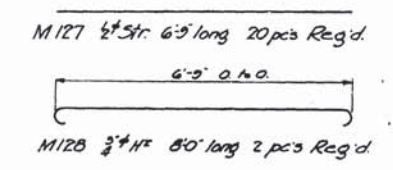 M127 ½"ϕ Str. 6'-9" long 20 pcs Req'd.
6'-9" O. to O.
M128 ¾"ϕ Hk 8'-0" long 2 pcs Req'd.